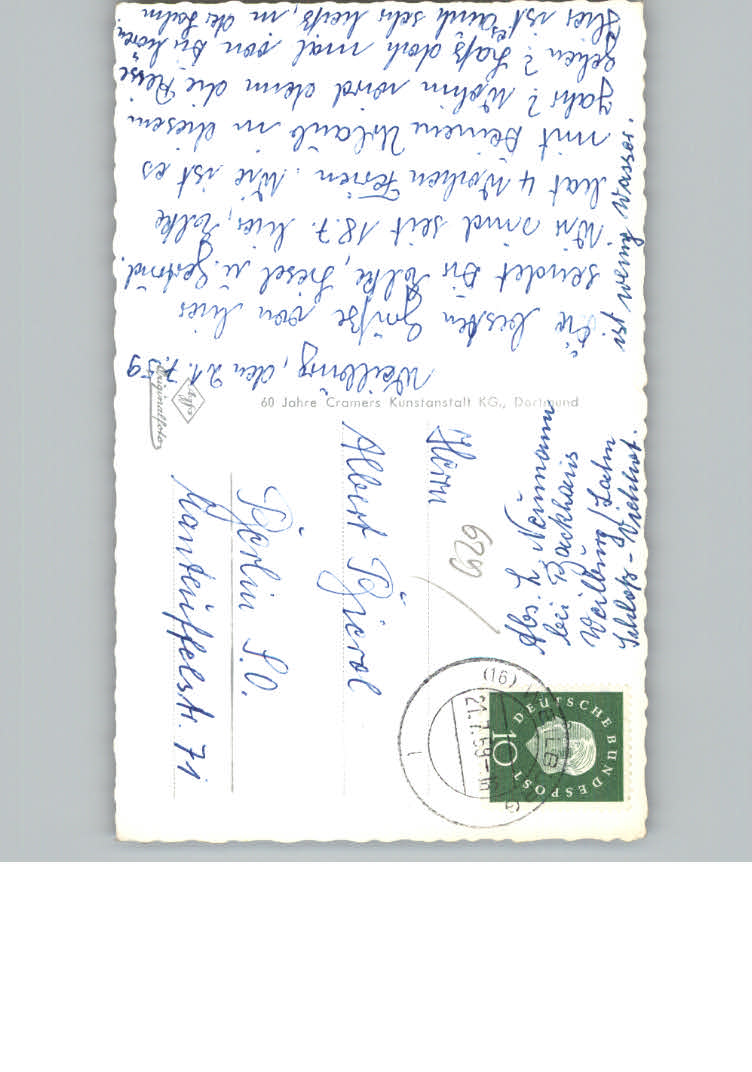 Weilburg, den 21.7.59
Die besten Grüße von hier
sendet Dir Elke, Liesel u. Gertrud.
Wir sind seit 18.7. hier, Elke
hat 4 Wochen Ferien. Wie ist es
mit Deinem Urlaub in diesem
Jahr? Wohin wird denn die Reise
gehen? Laß doch mal von Dir hören.
Hier ist es auch sehr heiß, in der Lahn
ist wenig Wasser.
60 Jahre Cramers Kunstanstalt KG., Dortmund
Agfa
Originalfoto
Abs. L. Neumann
bei Backhaus
Weilburg/Lahn
Schloß-Viehhof.
629
Herrn
Albert Bierol
Berlin S.O.
Manteuffelstr. 71
(16) WEILBURG
21.7.59-16
1
DEUTSCHE BUNDESPOST
10